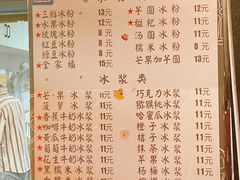 ★三鲜冰粉 13元
★水果冰粉 12元
★玫瑰冰粉 8元
红豆冰粉 8元
绿豆冰粉 8元
★全家福 15元
★芋圆冰粉 12元
★糍粑冰粉 12元
汤圆冰粉 12元
糯米冰粉
芒果加芋圆 13元
冰浆类
★芒果冰浆 11元
菠萝冰浆 11元
★香蕉牛奶冰浆 11元
★咖啡牛奶冰浆 11元
★黄桃牛奶冰浆 11元
★葡萄牛奶冰浆 11元
★花生牛奶冰浆 11元
★黑糯米冰浆 11元
巧克力冰浆 11元
猕猴桃冰浆 11元
哈蜜瓜冰浆 11元
橙子冰浆 11元
桔子冰浆 11元
抹茶冰浆 11元
苹果冰浆 11元
杨梅冰浆 11元